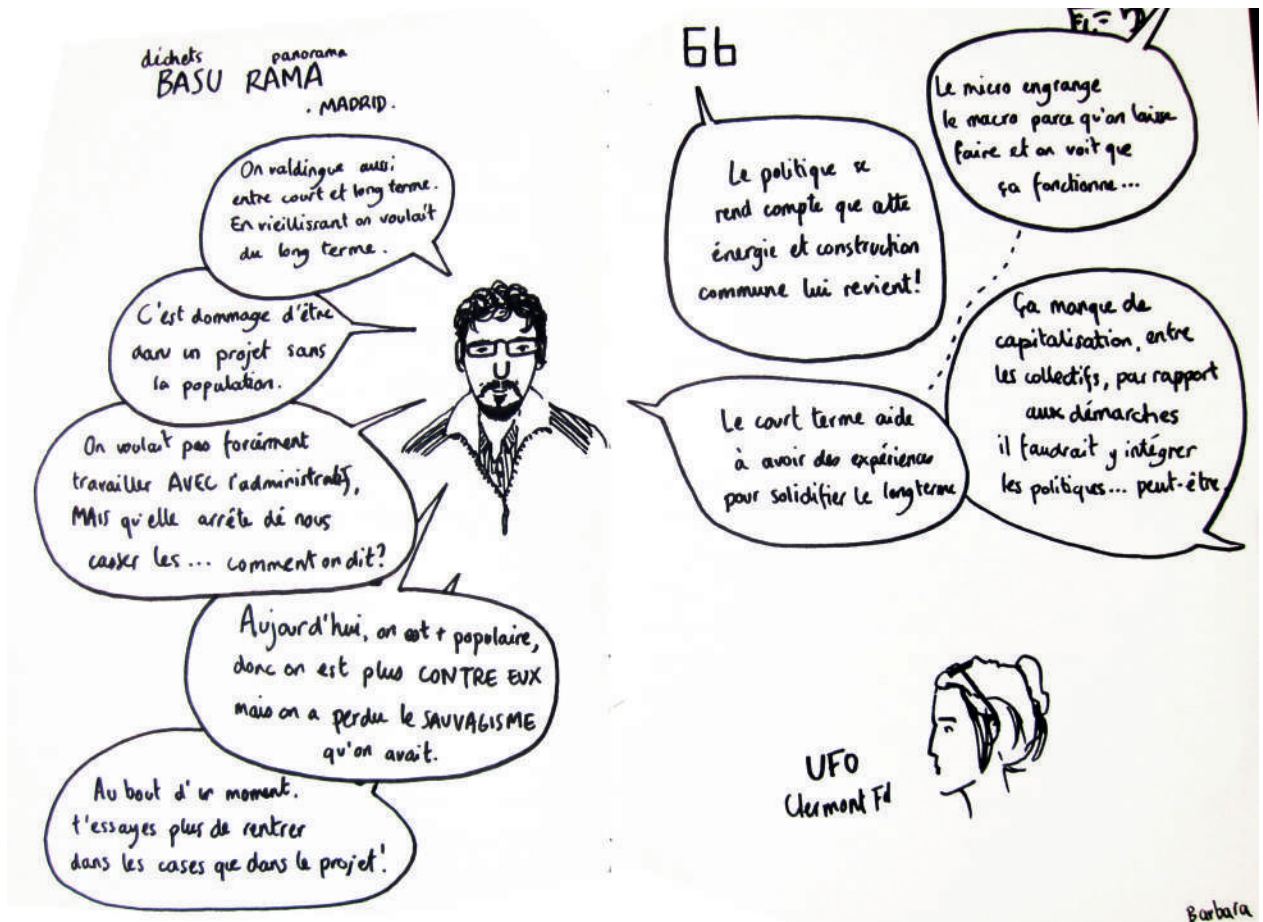 déchets panorama
BASU RAMA
. MADRID.
On valdingue aussi
entre court et long terme.
En vieillissant on voulait
du long terme.
C'est dommage d'être
dans un projet sans
la population.
On voulait pas forcément
travailler AVEC
MAIS qu'elle arrête dé nous
casser les... comment on dit?
Aujourd'hui, on est + populaire,
donc on est plus CONTRE EUX
mais on a perdu le SAUVAGISME
qu'on avait.
Au bout d'un moment.
t'essayes plus de rentrer
dans les cases que dans le projet!
6b
Le politique se
rend compte que cette
énergie et construction
commune lui revient!
Le micro engrange
le macro parce qu'on laisse
faire et on voit que
ça fonctionne...
Le court terme aide
à avoir des expériences
pour solidifier le long terme
Ça manque de
capitalisation, entre
les collectifs, par rapport
aux démarches
il faudrait y intégrer
les politiques... peut-être
UFO
Clermont Fd
Barbara